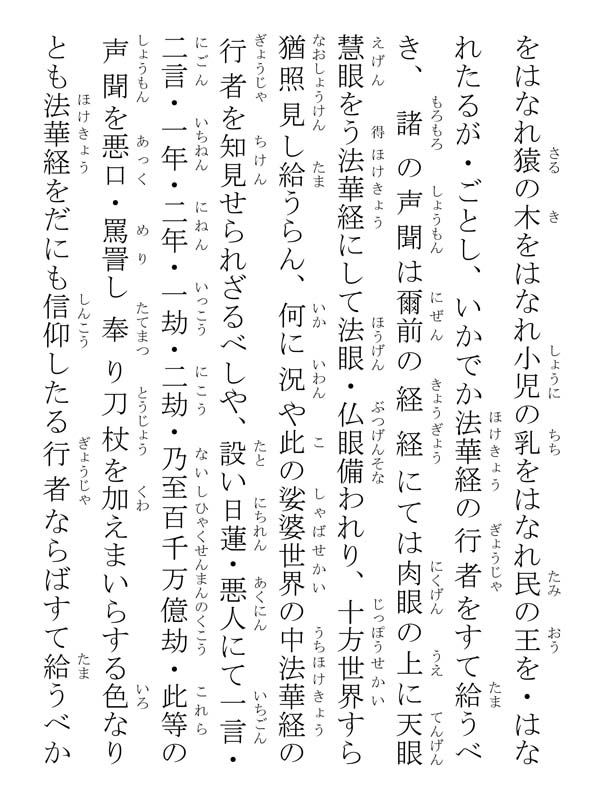 をはなれ猿の木をはなれ小児の乳をはなれ民の王を・はな
れたるが・ごとし、いかでか法華経の行者をすて給うべ
き、諸の声聞は爾前の経経にては肉眼の上に天眼
慧眼をう得法華経にして法眼・仏眼備われり、十方世界すら
猶照見し給うらん、何に況や此の娑婆世界の中法華経の
行者を知見せられざるべしや、設い日蓮・悪人にて一言・
二言・一年・二年・一劫・二劫・乃至百千万億劫・此等の
声聞を悪口・罵詈し奉り刀杖を加えまいらする色なり
とも法華経をだにも信仰したる行者ならばすて給うべか